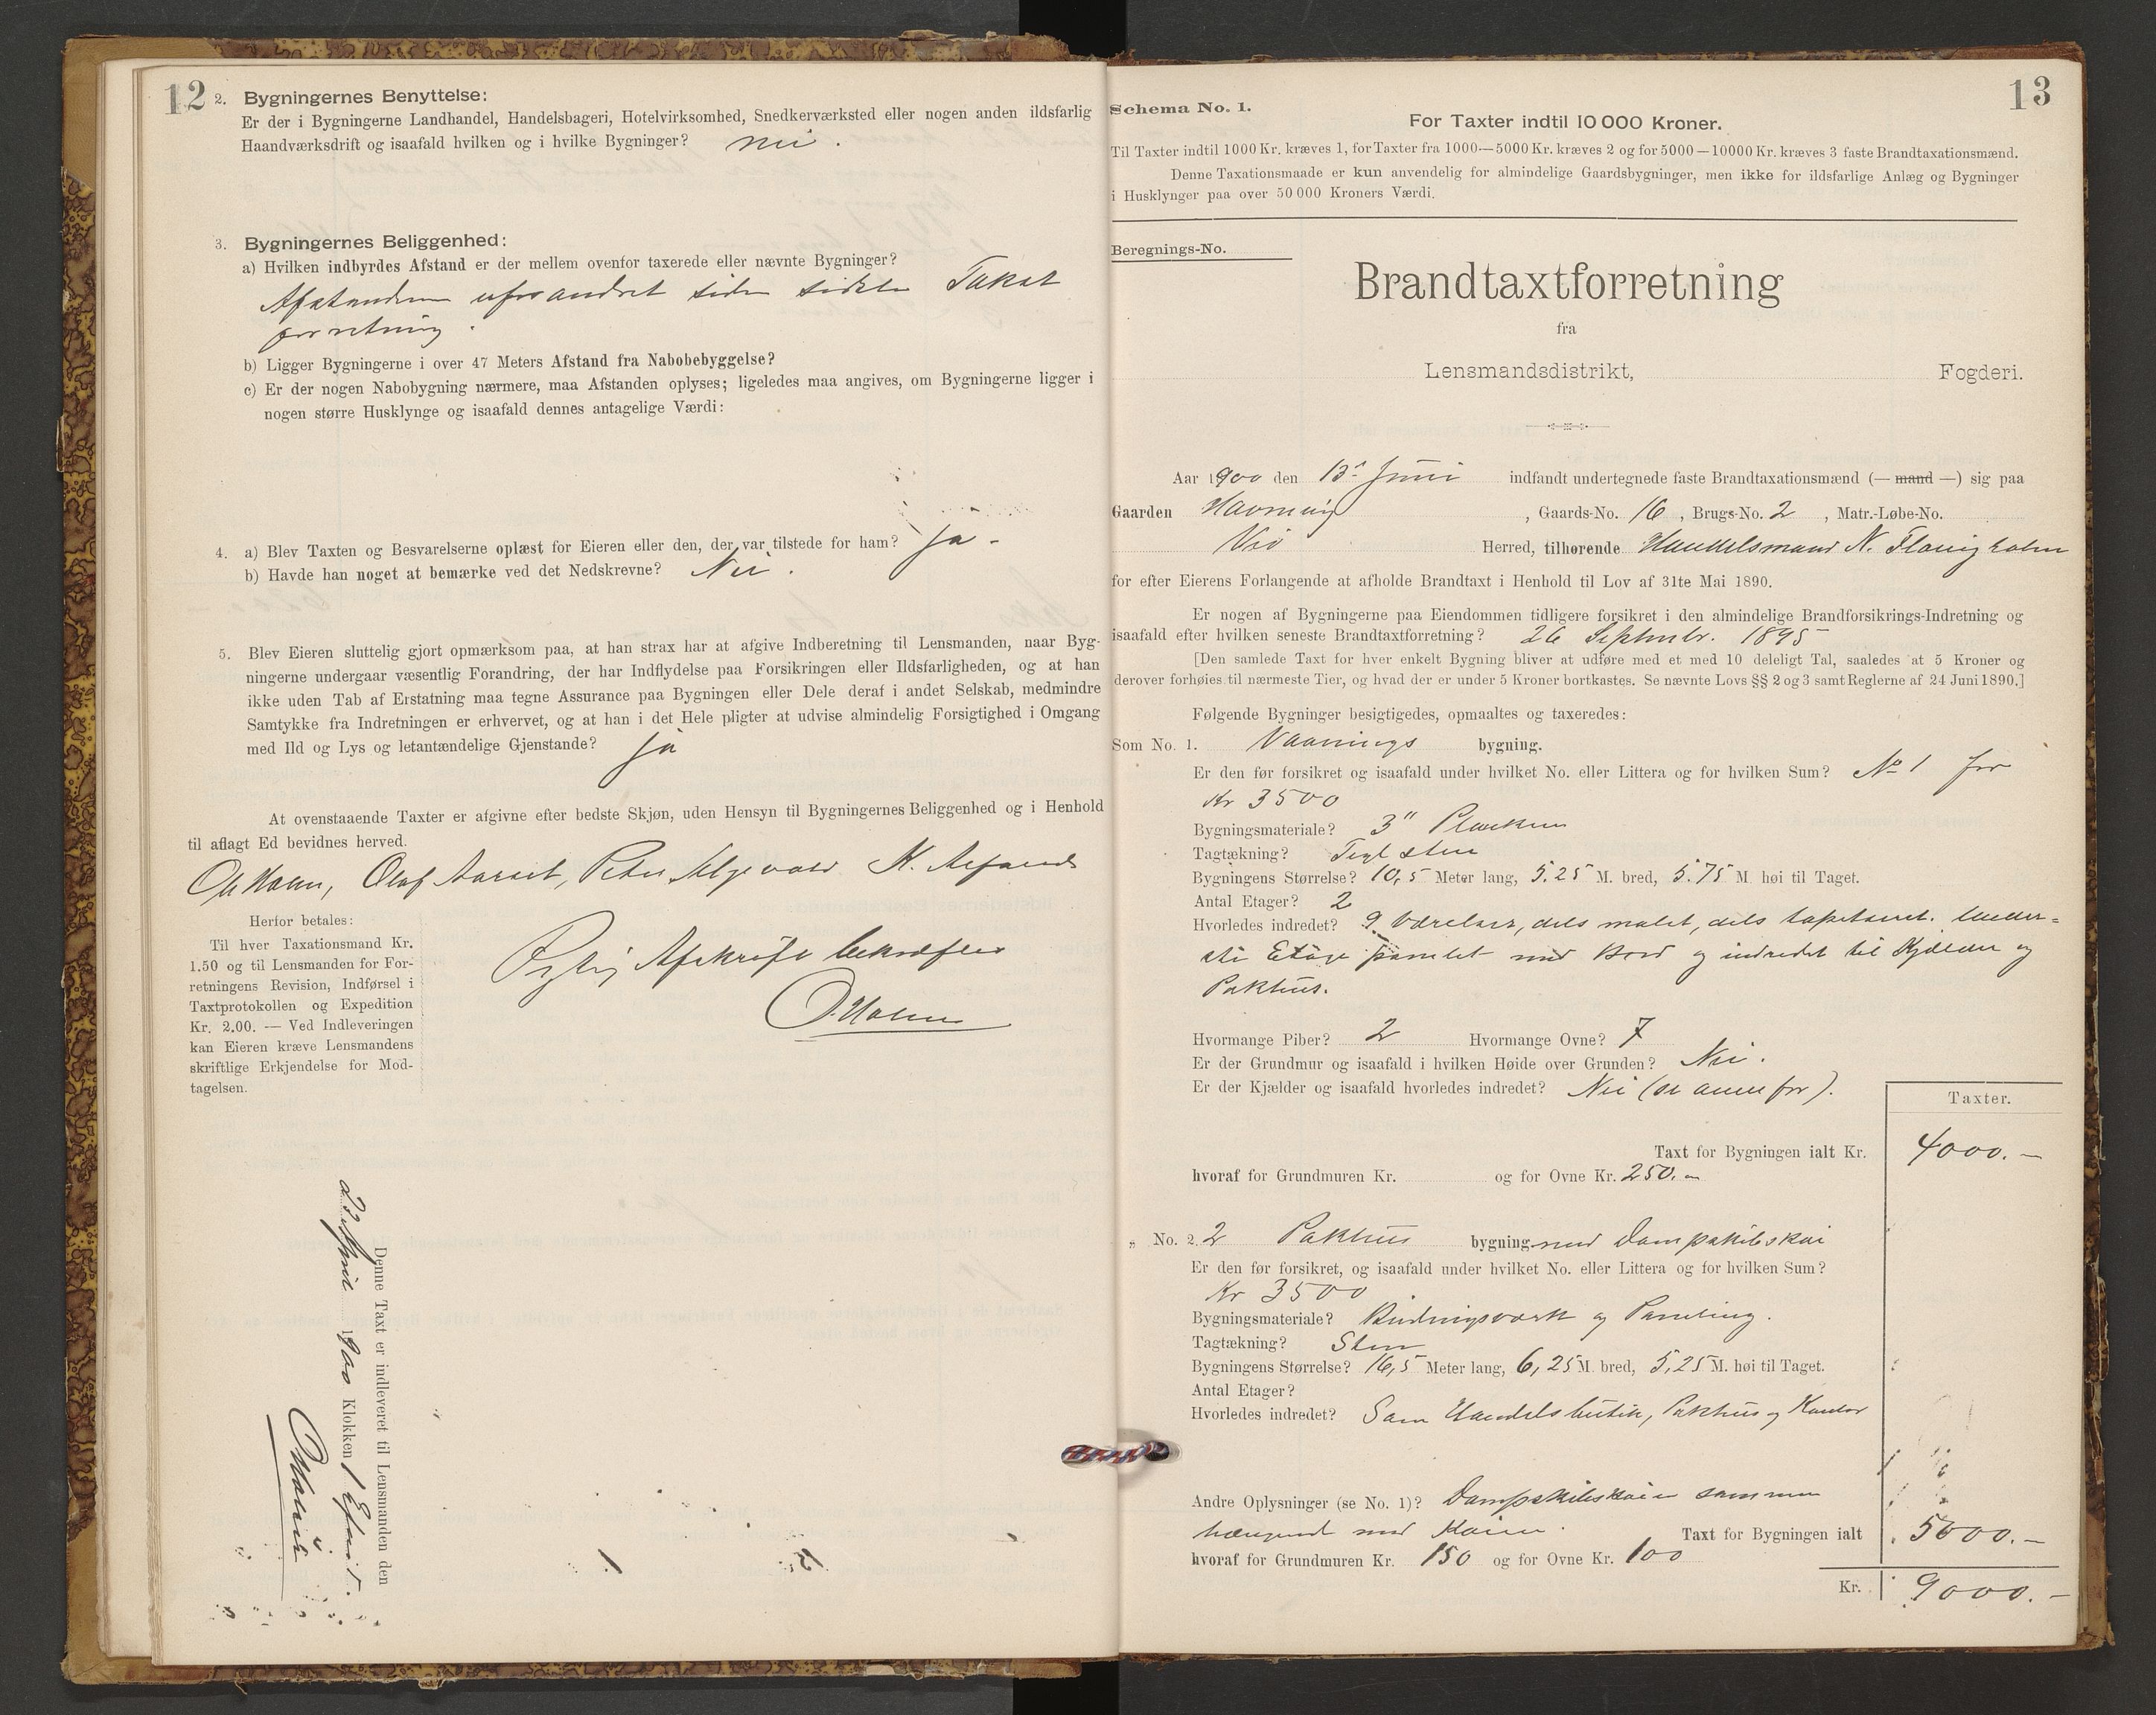 12
2. Bygningernes Benyttelse:
Er der i Bygningerne Landhandel, Handelsbageri, Hotelvirksomhed, Snedkerværksted eller nogen anden ildsfarlig
Haandværksdrift og isaafald hvilken og i hvilke Bygninger? nei.
3. Bygningernes Beliggenhed:
a) Hvilken indbyrdes Afstand er der mellem ovenfor taxerede eller nævnte Bygninger?
Afstanden uforandret siden sidste Takst
forretning.
b) Ligger Bygningerne i over 47 Meters Afstand fra Nabobebyggelse?
c) Er der nogen Nabobygning nærmere, maa Afstanden oplyses; ligeledes maa angives, om Bygningerne ligger i
nogen større Husklynge og isaafald dennes antagelige Værdi:
4. a) Blev Taxten og Besvarelserne oplæst for Eieren eller den, der var tilstede for ham? ja -
b) Havde han noget at bemærke ved det Nedskrevne? Nei.
5. Blev Eieren sluttelig gjort opmærksom paa, at han strax har at afgive Indberetning til Lensmanden, naar Byg-
ningerne undergaar væsentlig Forandring, der har Indflydelse paa Forsikringen eller Ildsfarligheden, og at han
ikke uden Tab af Erstatning maa tegne Assurance paa Bygningen eller Dele deraf i andet Selskab, medmindre
Samtykke fra Indretningen er erhvervet, og at han i det Hele pligter at udvise almindelig Forsigtighed i Omgang
med Ild og Lys og letantændelige Gjenstande? ja
At ovenstaaende Taxter er afgivne efter bedste Skjøn, uden Hensyn til Bygningernes Beliggenhed og i Henhold
til aflagt Ed bevidnes herved.
Olaf Aarset, Peter
Herfor betales:
Til hver Taxationsmand Kr.
1.50 og til Lensmanden for For-
retningens Revision, Indførsel i
Taxtprotokollen og Expedition
Kr. 2.00. — Ved Indleveringen
kan Eieren kræve Lensmandens
skriftlige Erkjendelse for Mod-
tagelsen.
Rigtig Afskrift bekræftes
Denne Taxt er indleveret til Lensmanden den
1900 Klokken 1 Efm.
13
Schema No. 1.
For Taxter indtil 10 000 Kroner.
Til Taxter indtil 1000 Kr. kræves 1, for Taxter fra 1000—5000 Kr. kræves 2 og for 5000—10000 Kr. kræves 3 faste Brandtaxationsmænd.
Denne Taxationsmaade er kun anvendelig for almindelige Gaardsbygninger, men ikke for ildsfarlige Anlæg og Bygninger
i Husklynger paa over 50 000 Kroners Værdi.
Beregnings-No.
Brandtaxtforretning
fra
Lensmandsdistrikt, Fogderi.
Aar 1900 den 13de Juni indfandt undertegnede faste Brandtaxationsmænd (— mand —) sig paa
Gaarden Havnevig, Gaards-No. 16, Brugs-No. 2, Matr.-Løbe-No.
Herred, tilhørende Handelsmand N.
for efter Eierens Forlangende at afholde Brandtaxt i Henhold til Lov af 31te Mai 1890.
Er nogen af Bygningerne paa Eiendommen tidligere forsikret i den almindelige Brandforsikrings-Indretning og
isaafald efter hvilken seneste Brandtaxtforretning? 26 Septembr. 1895
[Den samlede Taxt for hver enkelt Bygning bliver at udføre med et med 10 deleligt Tal, saaledes at 5 Kroner og
derover forhøies til nærmeste Tier, og hvad der er under 5 Kroner bortkastes. Se nævnte Lovs §§ 2 og 3 samt Reglerne af 24 Juni 1890.]
Følgende Bygninger besigtigedes, opmaaltes og taxeredes:
Som No. 1. Vaanings bygning.
Er den før forsikret og isaafald under hvilket No. eller Littera og for hvilken Sum? No 1 for
Kr 3500
Bygningsmateriale? 3" Planker
Tagtækning? Teglsten
Bygningens Størrelse? 10,5 Meter lang, 5.25 M. bred, 5.75 M. høi til Taget.
Antal Etager? 2
Hvorledes indredet? 9 Værelser, dels malet, dels tapetseret. Under-
ste Etage panelet med Bord og indredet til Kjælder og
Pakhus.
Hvormange Piber? 2 Hvormange Ovne? 7
Er der Grundmur og isaafald i hvilken Høide over Grunden? Nei.
Er der Kjælder og isaafald hvorledes indredet? Nei (se ovenfor).
Taxter.
Taxt for Bygningen ialt Kr. 4000.—
hvoraf for Grundmuren Kr. og for Ovne Kr. 250.—
„ No. 2. 2 Pakhus bygning med Dampskibskai
Er den før forsikret, og isaafald under hvilket No. eller Littera og for hvilken Sum?
Kr 3500
Bygningsmateriale? Bindingsværk og Paneling.
Tagtækning? Sten
Bygningens Størrelse? 16,5 Meter lang, 6,25 M. bred, 5,25 M. høi til Taget.
Antal Etager?
Hvorledes indredet? Som Handelsbutik, Pakhus og Kontor
Andre Oplysninger (se No. 1)? Dampskibskaien sammen
hængende med Kaien.
Taxt for Bygningen ialt 5000.—
hvoraf for Grundmuren Kr. 150 og for Ovne Kr. 100
Kr. 9000.—